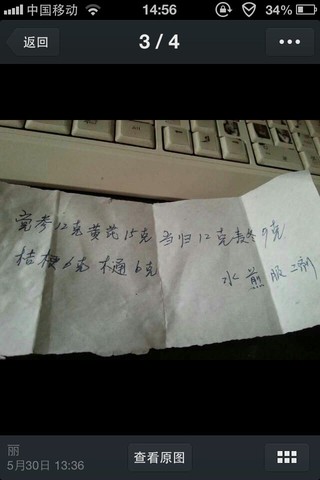 中国移动 14:56 34%
返回 3 / 4
党参12克黄芪15克 当归12克麦冬9克
桔梗6克 木通6克
水煎服二剂
丽
5月30日 13:36
查看原图